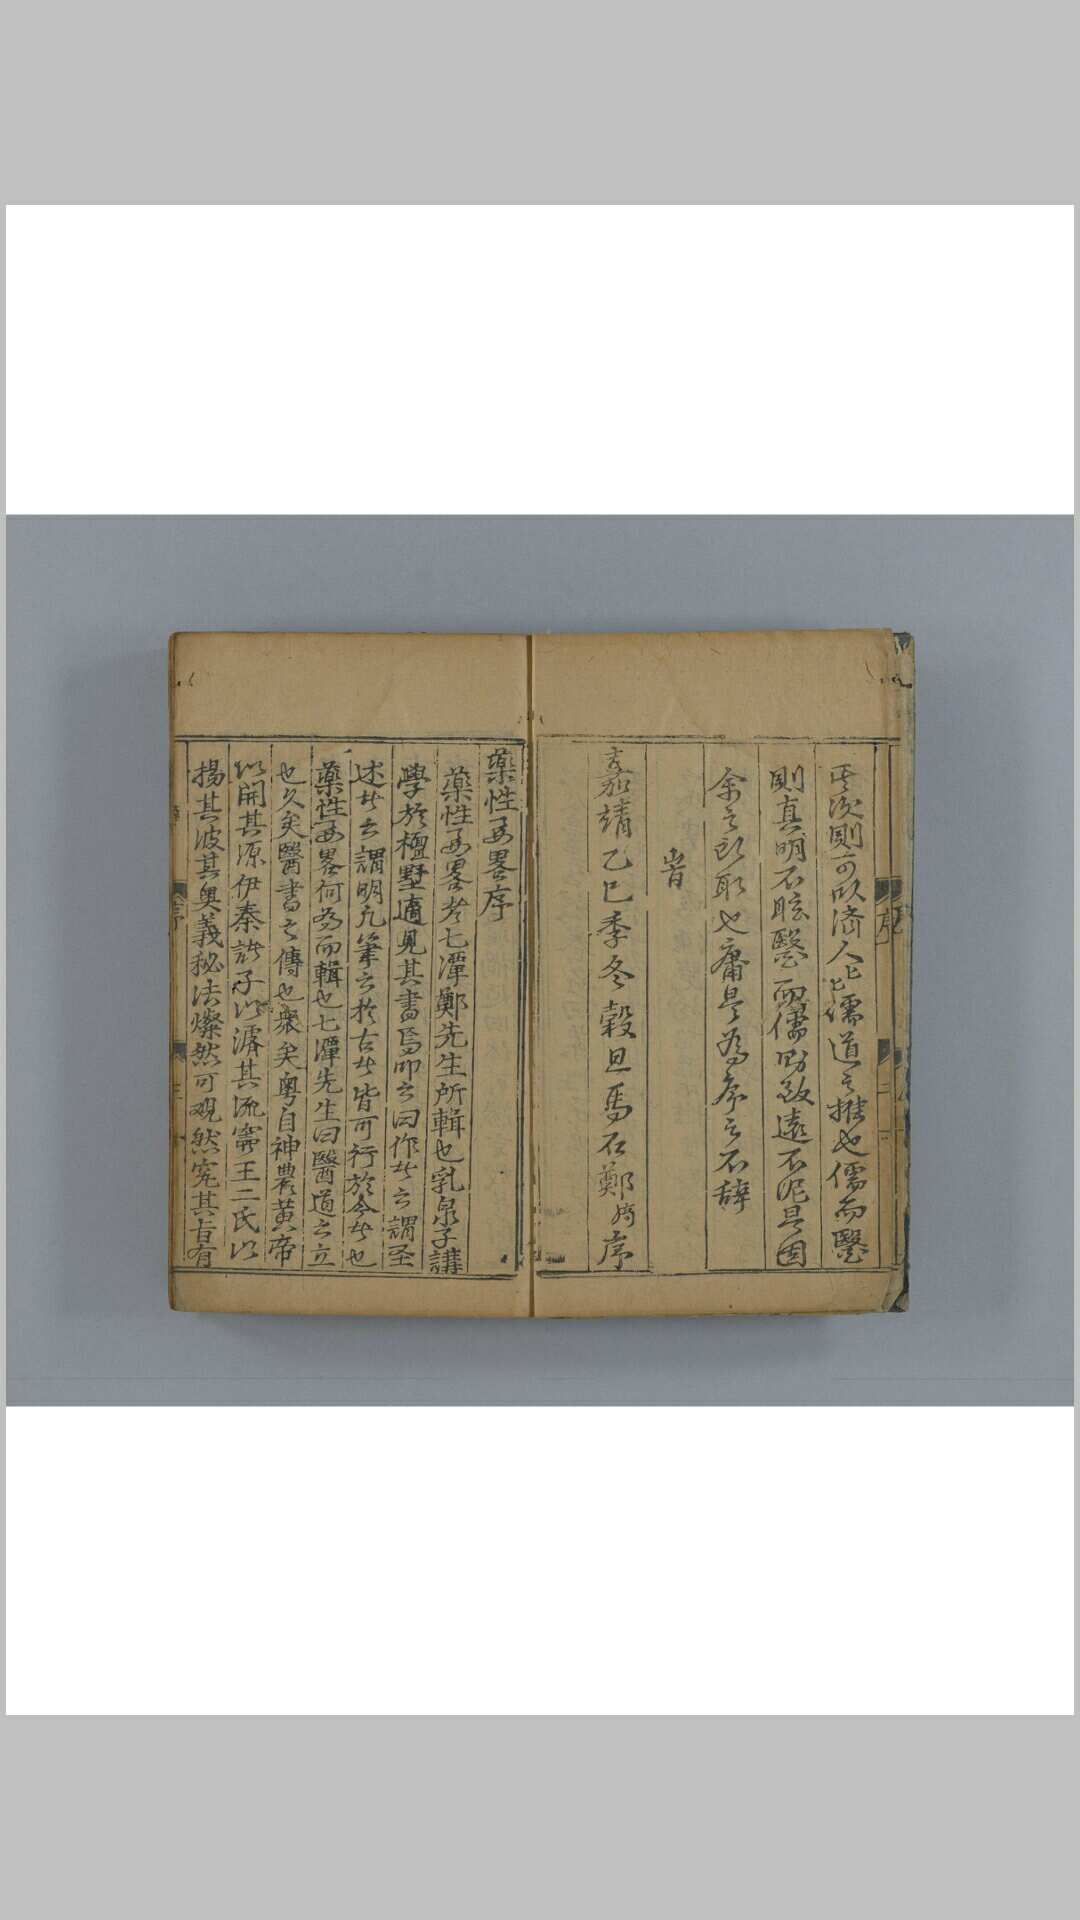 其次則可以濟人人儒道之推也儒而醫
則真明不眩醫而儒則致遠不泥是固
余之所取也庸是為序之不辭
時
嘉靖乙巳季冬穀旦馬石鄭 序
序
二
藥性要畧序
藥性要畧者七潭鄭先生所輯也乳泉子講
學於檀墅適見其書焉叩之曰作者之謂圣
述者之謂明凡筆之於古者皆可行於今者也
藥性要畧何為而輯也七潭先生曰醫道之立
也久矣醫書之傳也衆矣粤自神農黄帝
以開其源伊秦諸子以濬其流寧王二氏以
揚其波其奥義秘法燦然可观然究其旨有
序
三